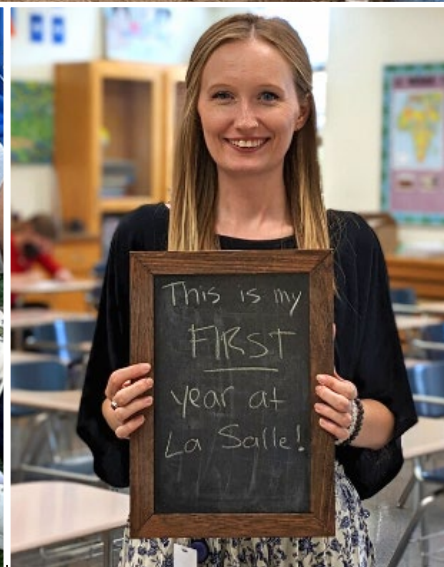 This is my
FIRST
year at
La Salle!